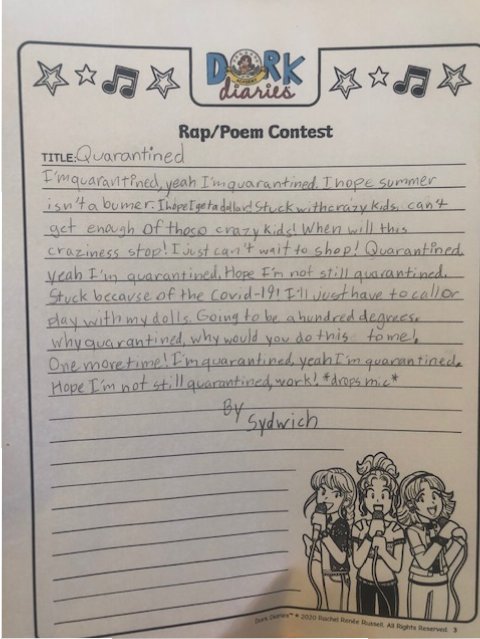 DORK
diaries
Rap/Poem Contest
TITLE: Quarantined
I'm quarantined, yeah I'm quarantined. I hope summer
isn't a bumer. I hope I get a dollar! Stuck with crazy kids, can't
get enough of those crazy kids! When will this
craziness stop! I just can't wait to shop! Quarantined,
yeah I'm quarantined. Hope I'm not still quarantined.
Stuck because of the Covid-19! I'll just have to call or
play with my dolls. Going to be a hundred degrees.
Why quarantined, why would you do this to me!
One more time! I'm quarantined, yeah I'm quarantined.
Hope I'm not still quarantined, work! *drops mic*
By
Sydwich
Dork Diaries™ © 2020 Rachel Renée Russell. All Rights Reserved. 3